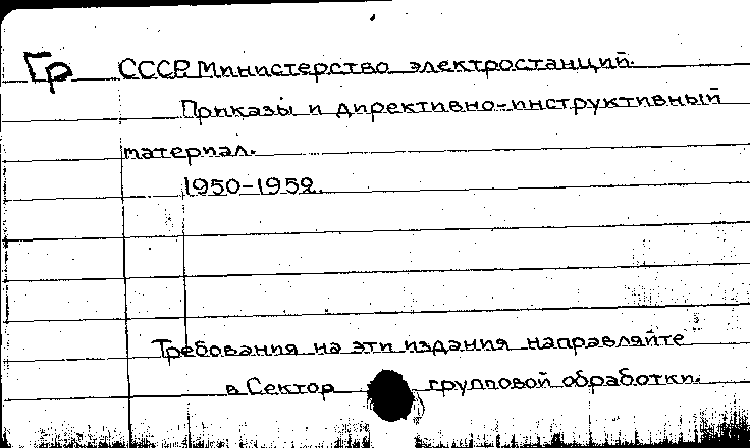 Гр СССР Министерство электростанций.
Приказы и директивно-инструктивный
материал.
1950-1952.
Требования на эти издания направляйте
в Сектор групповой обработки.